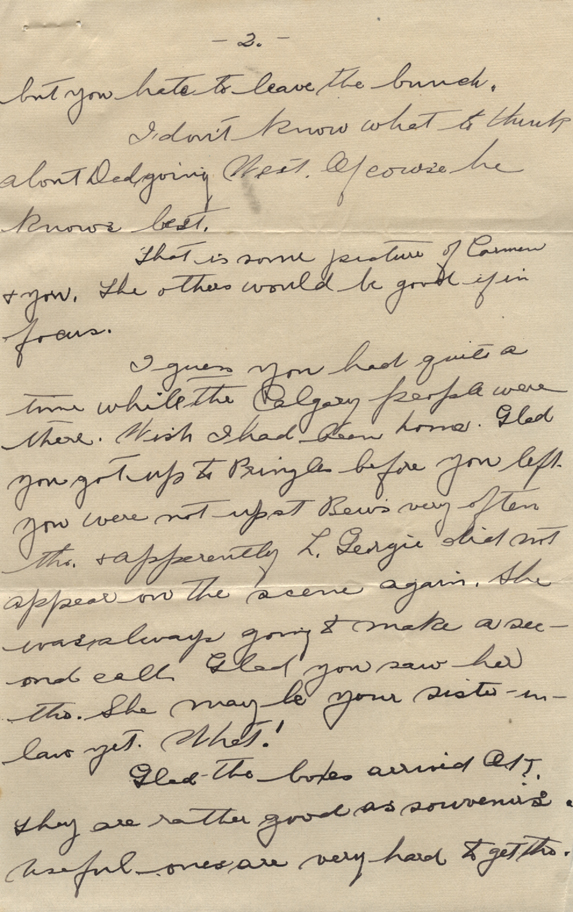 - 2. -
but you hate to leave the bunch.
I don't know what to think
about Dad going West. Of course he
knows best.
That is some picture of Carmen
& you. The others would be good if in
focus.
I guess you had quite a
time while the Calgary people were
there. Wish I had been home. Glad
you got up to Pringles before you left.
you were not up st Bews very often
tho. & apparently L. Georgie did not
appear on the scene again. She
was always going to make a sec-
ond call. Glad you saw her
tho. She may be your sister-in-
law yet. What!
Glad the boxes arrived
They are rather good as souvenirs.
Useful ones are very hard to get tho.